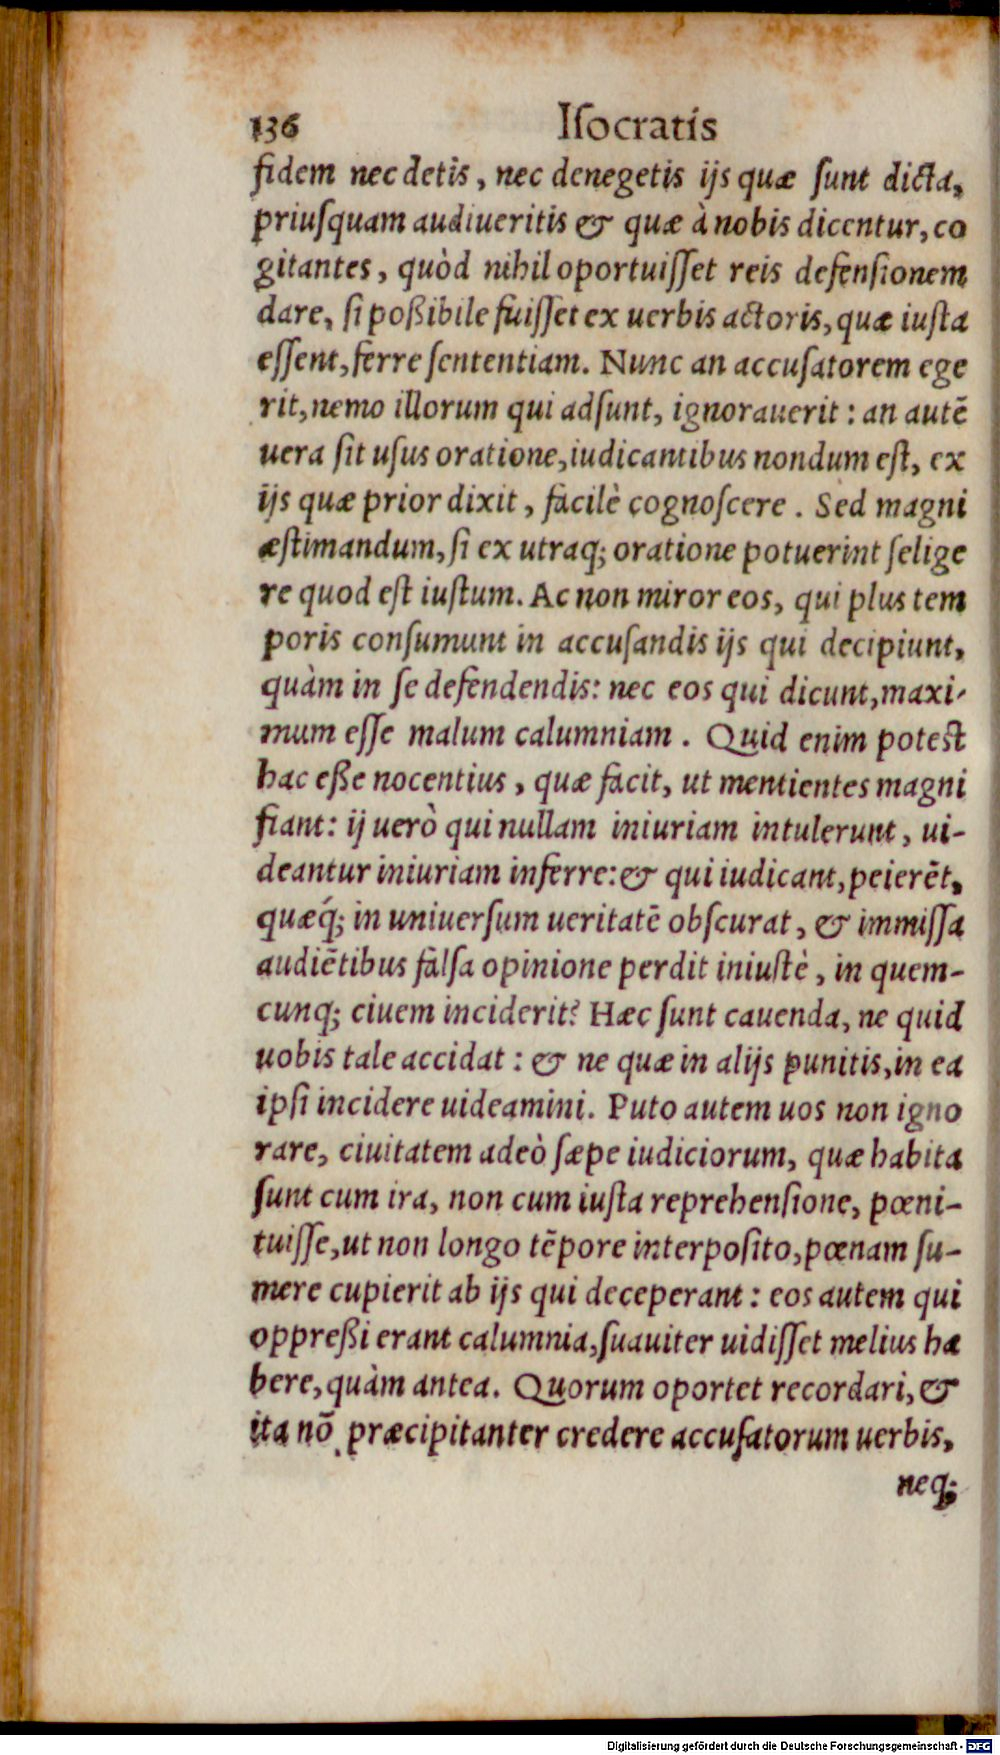 136 Iſocratis
fidem nec detis, nec denegetis ijs quæ ſunt dicta,
priuſquam audiueritis & quæ à nobis dicentur, co
gitantes, quòd nihil oportuiſſet reis defenſionem
dare, ſi poßibile fuiſſet ex uerbis actoris, quæ iuſta
eſſent, ferre ſententiam. Nunc an accuſatorem ege
rit, nemo illorum qui adſunt, ignorauerit: an autē
uera ſit uſus oratione, iudicantibus nondum eſt, ex
ijs quæ prior dixit, facilè cognoſcere. Sed magni
æſtimandum, ſi ex utraq; oratione potuerint ſelige
re quod eſt iuſtum. Ac non miror eos, qui plus tem
poris conſumunt in accuſandis ijs qui decipiunt,
quàm in ſe defendendis: nec eos qui dicunt, maxi-
mum eſſe malum calumniam. Quid enim poteſt
hac eße nocentius, quæ facit, ut mentientes magni
fiant: ij uerò qui nullam iniuriam intulerunt, ui-
deantur iniuriam inferre: & qui iudicant, peierēt,
quæq́; in uniuerſum ueritatē obſcurat, & immiſſa
audiētibus falſa opinione perdit iniuſtè, in quem-
cunq; ciuem inciderit? Hæc ſunt cauenda, ne quid
uobis tale accidat: & ne quæ in alijs punitis, in ea
ipſi incidere uideamini. Puto autem uos non igno
rare, ciuitatem adeò ſæpe iudiciorum, quæ habita
ſunt cum ira, non cum iuſta reprehenſione, pœni-
tuiſſe, ut non longo tēpore interpoſito, pœnam ſu-
mere cupierit ab ijs qui deceperant: eos autem qui
oppreßi erant calumnia, ſuauiter uidiſſet melius ha
bere, quàm antea. Quorum oportet recordari, &
ita nō præcipitanter credere accuſatorum uerbis,
neq;
Digitalisierung gefördert durch die Deutsche Forschungsgemeinschaft - DFG